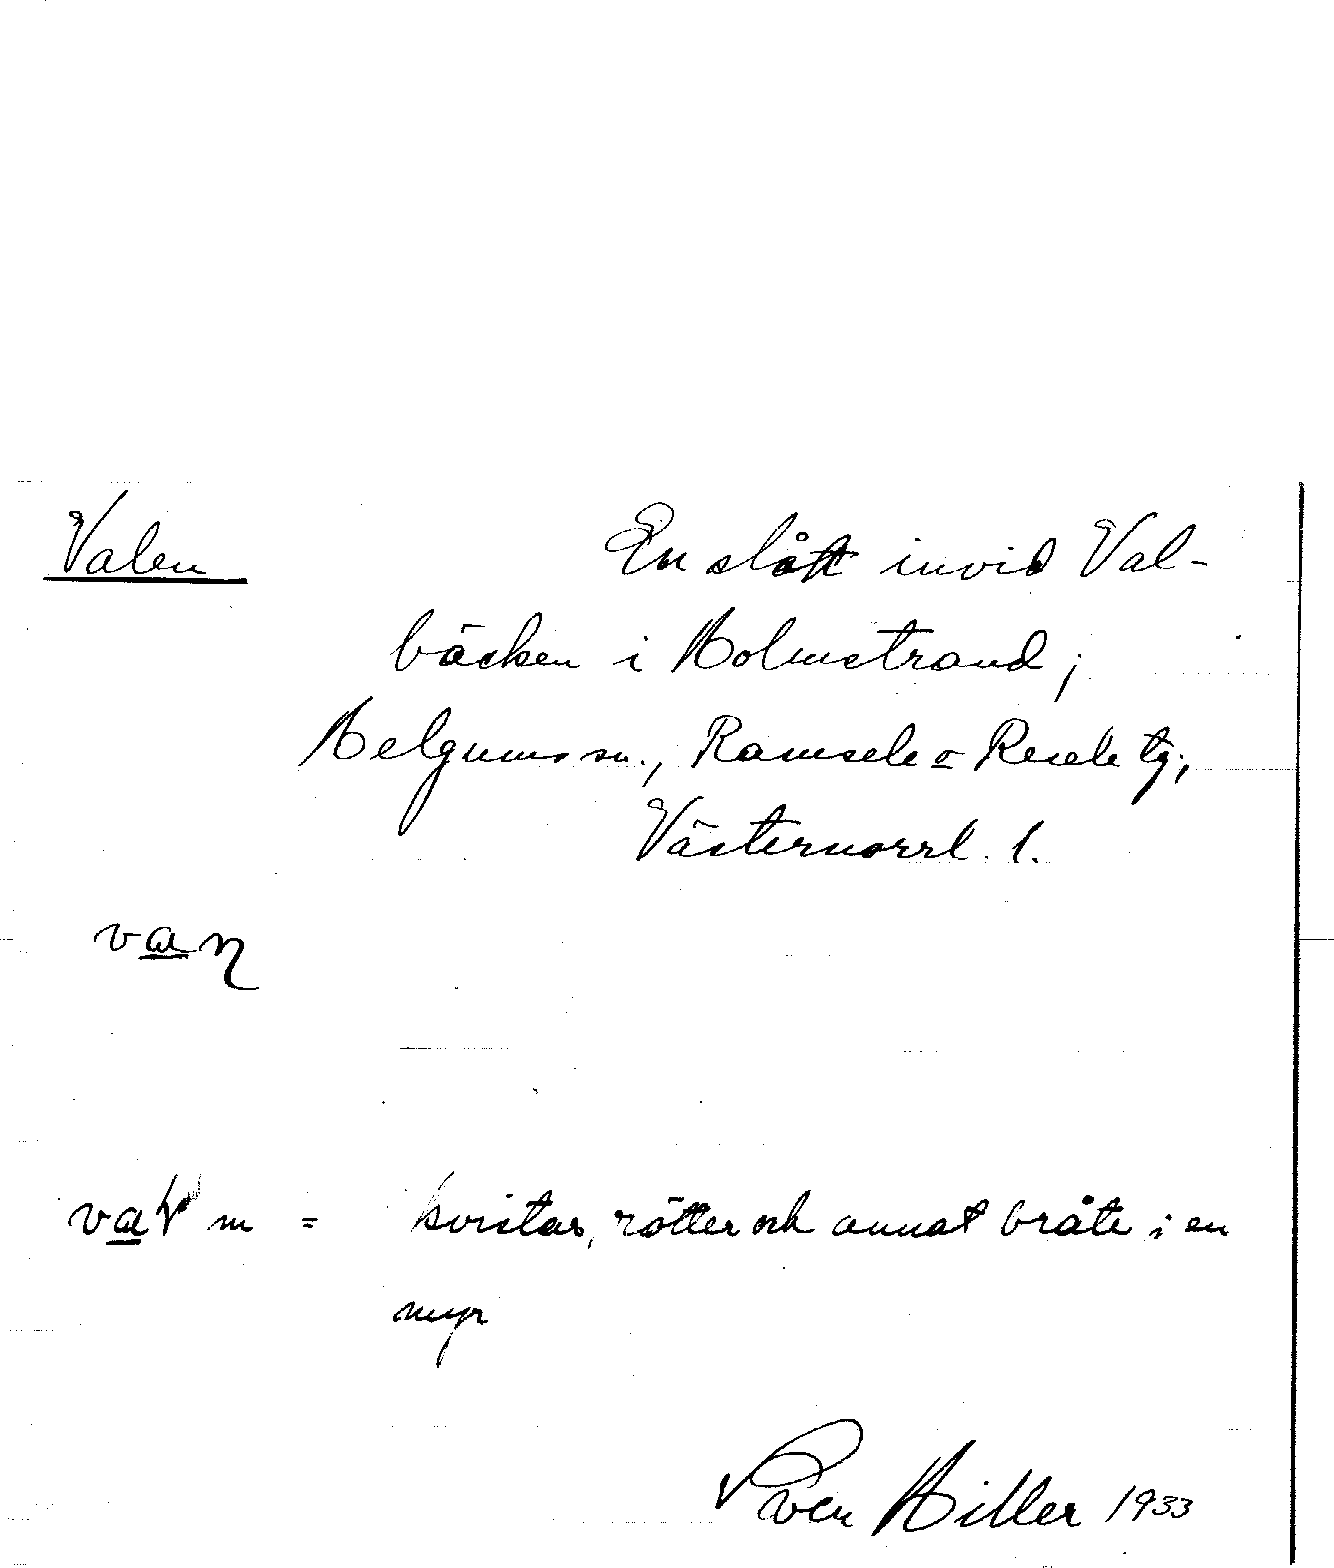 Valen
En slått invid Val-
bäcken i Holmstrand;
Helgums sn., Ramsele o Resele tg;
Västernorrl. l.
van
m = kvistar, rötter och annat bråte i en
myr
Sven Hiller 1933